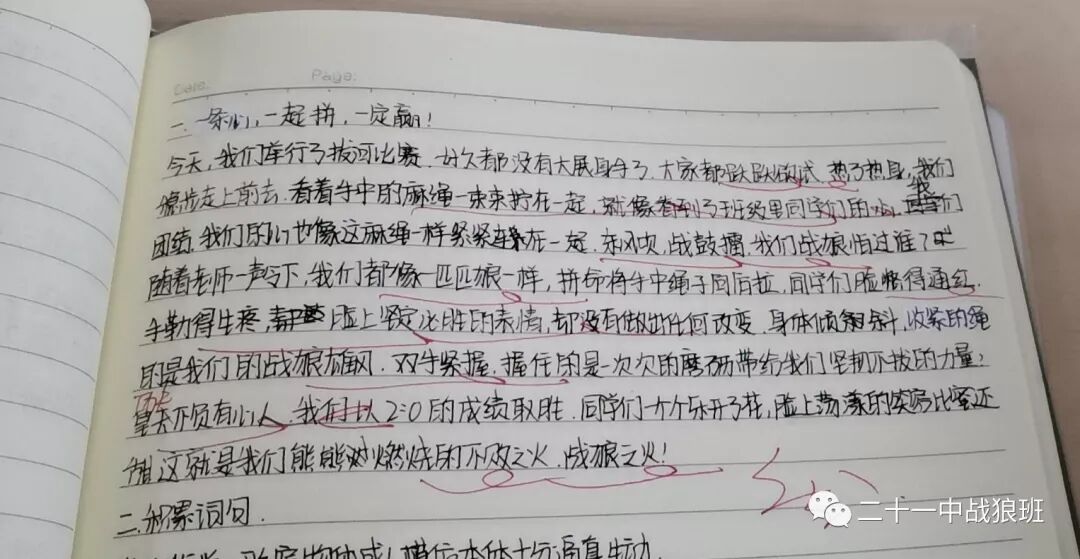 Date:
Page:
一. 一条心，一起拼，一定赢！
今天，我们举行了拔河比赛. 好久都没有大展身手了. 大家都跃跃欲试. 热了热身，我们
稳步走上前去. 看着手中的麻绳一束束拧在一起，就像看到了班级里同学们的心，我们
团结. 我们的心也像这麻绳一样紧紧在一起. 东风吹，战鼓擂，我们战狼怕过谁？
随着老师一声令下，我们都像一匹匹狼一样，拼命将手中绳子向后拉. 同学们脸憋得通红.
手勒得生疼，脸上坚定必胜的表情，却没有做出任何改变. 身体倾斜，收紧的绳
是我们的战狼雄风. 双手紧握，握住的是一次次的磨砺带给我们坚韧不拔的力量；
皇天不负有心人. 我们以2:0的成绩取胜. 同学们一个个乐开了花，脸上荡漾的笑容比蜜还
甜这就是我们能能对燃烧的不败之火. 战狼之火！
二. 积累词句.
二十一中战狼班